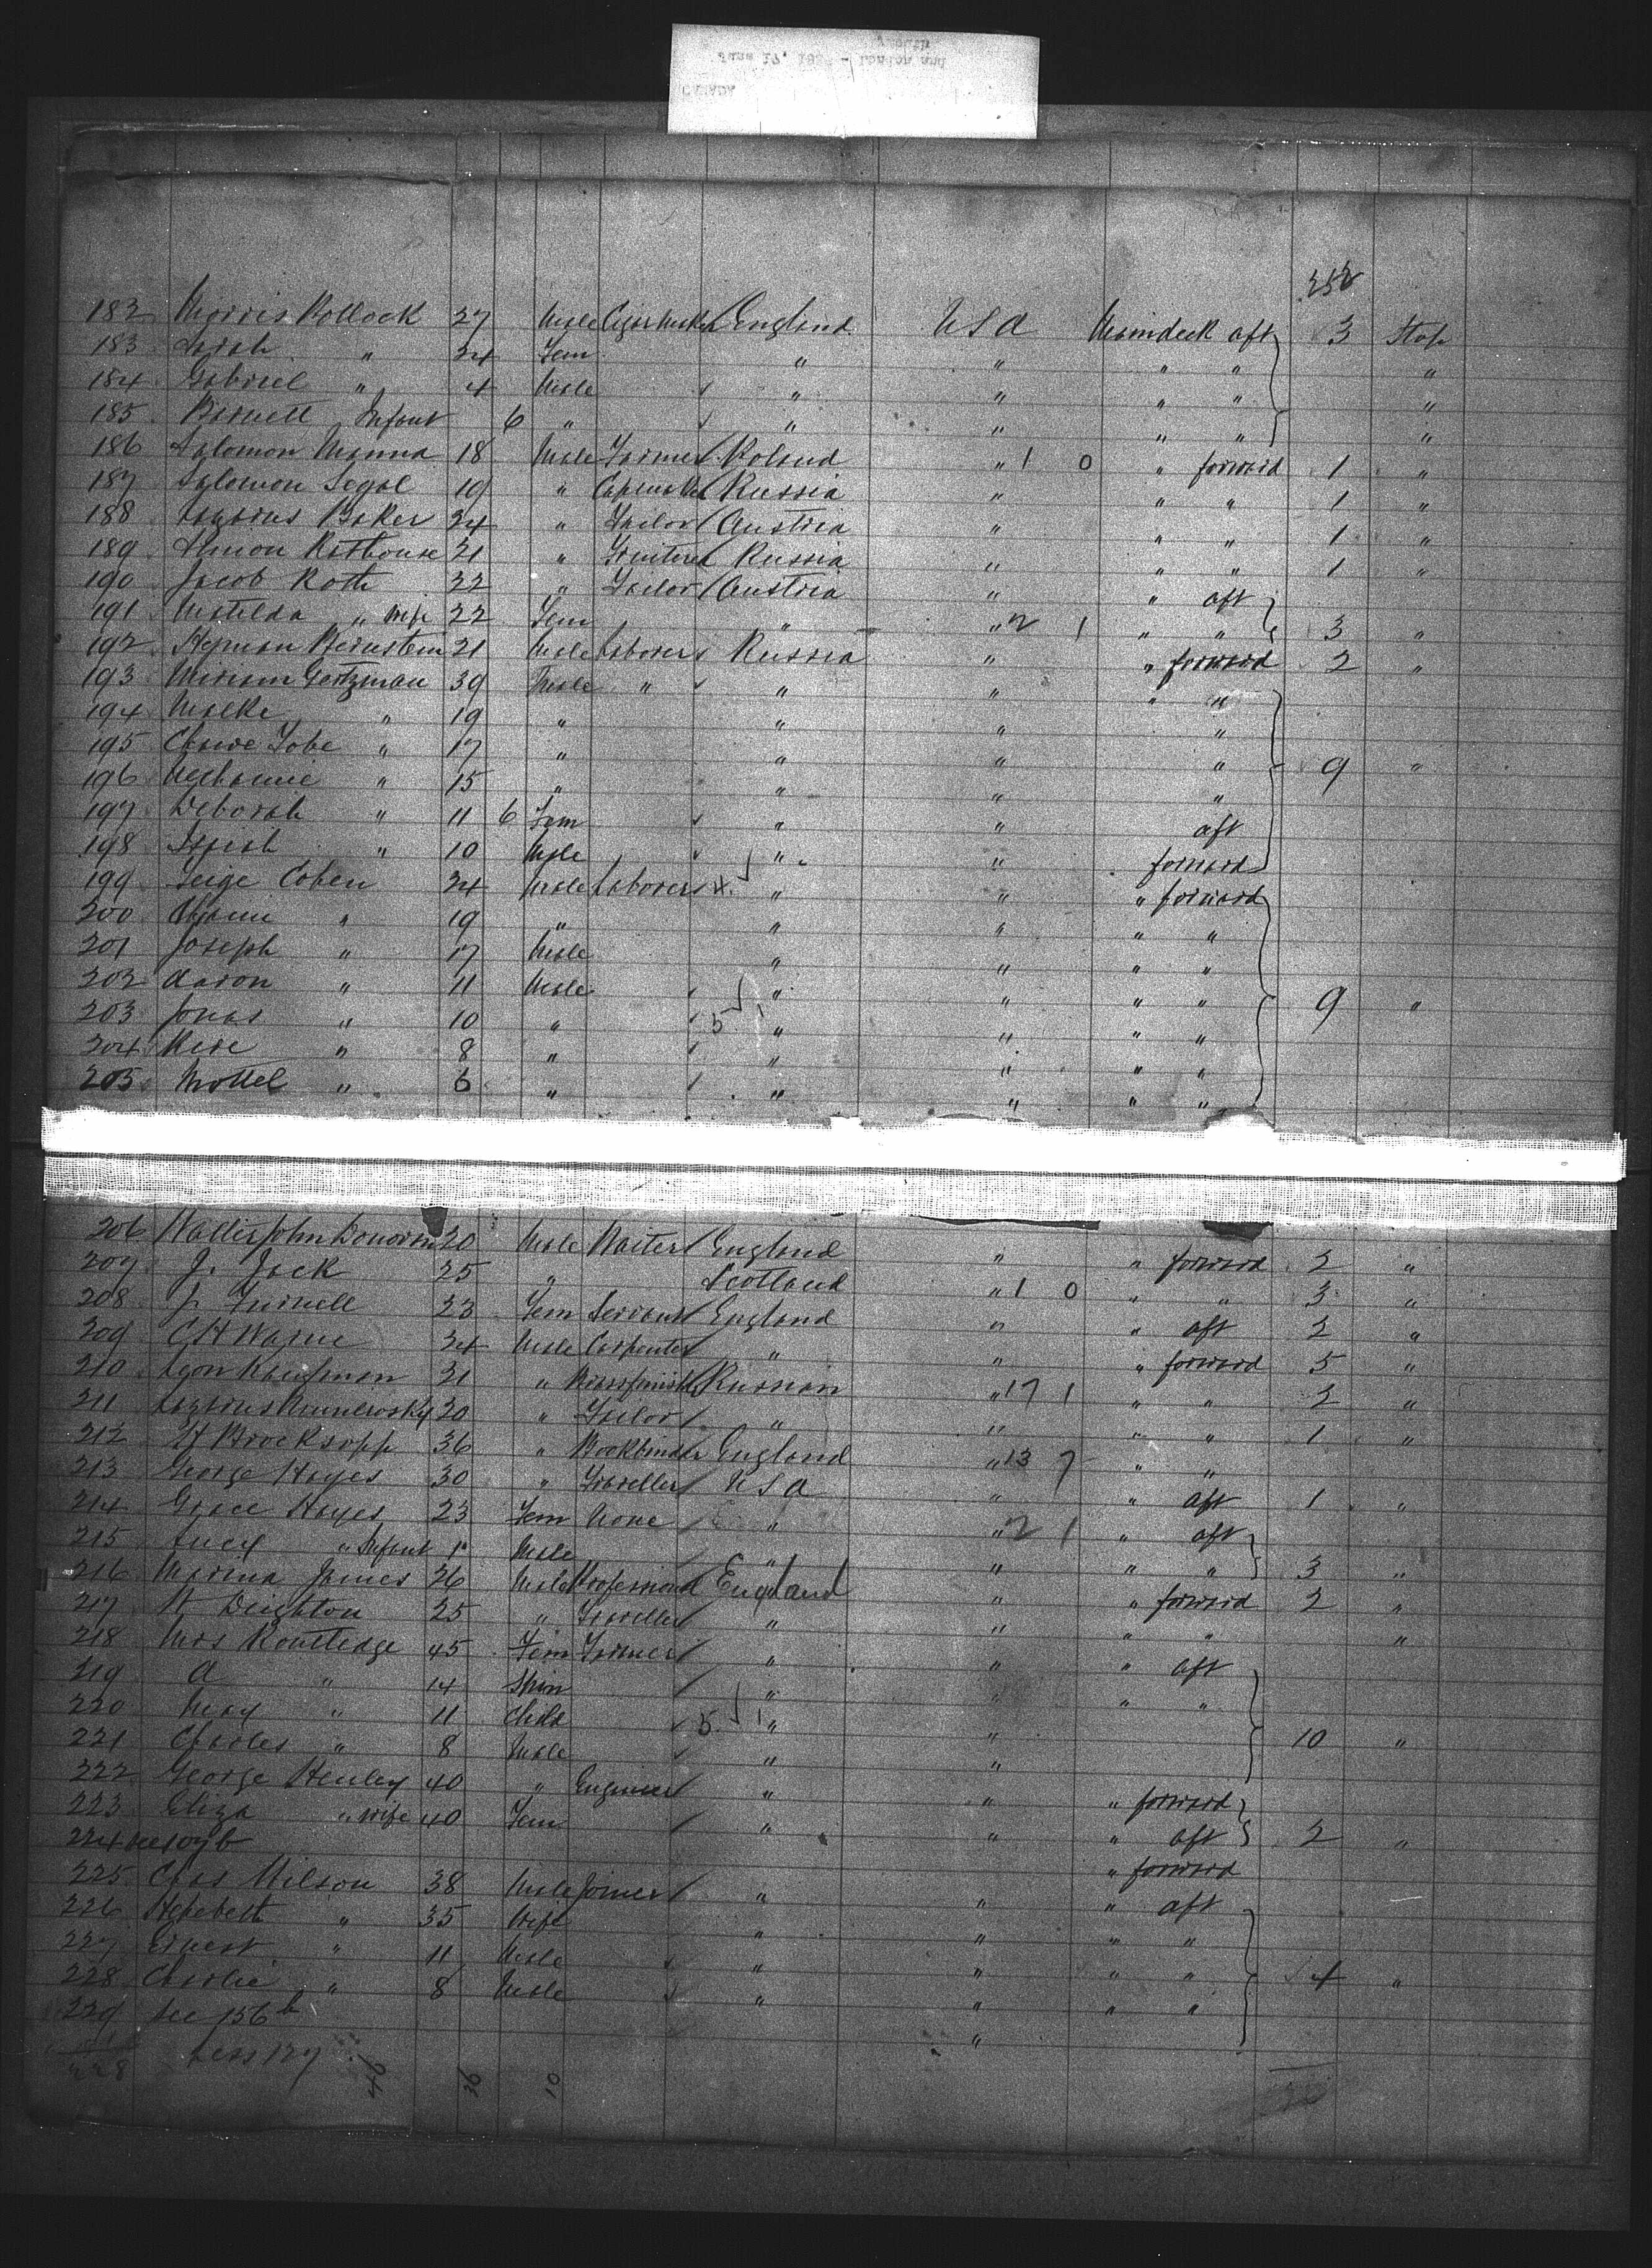 252
182 Morris Pollock 27 Male Cigar Maker England USA Maindeck aft 3 Stop
183 Sarah " 24 Fem " " " " "
184 Gabriel " 4 Male " " " " "
185 Barnett Infant 6 " " " " " "
186 Solomon Manna 18 Male Farmer Poland " 1 0 " forward 1 "
187 Solomon Segal 19 " Capmaker Russia " " " 1 "
188 Lazarus Baker 24 " Tailor Austria " " " 1 "
189 Simon Rathouse 21 " Fruiterer Russia " " " 1 "
190 Jacob Roth 22 " Tailor Austria " " aft
191 Matilda " Wife 22 Fem " " 2 1 " " 3 "
192 Hyman Bernstein 21 Male Laborer Russia " " forward 2 "
193 Miriam Gertzman 39 Male " " " " "
194 Malke " 19 " " " "
195 " 17 " " " " 9 "
196 " 15 " " " "
197 Deborah " 11 6 Fem " " aft
198 " 10 Male " " forward
199 Cohen 24 Male Laborer " " " forward
200 " 19 " " " " "
201 Joseph " 17 Male " " " "
202 Aaron " 11 Male " " " " 9 "
203 Jonas " 10 " 5 " " " "
204 " 8 " " " " "
205 Mottel " 6 " " " " "
206 Wallis John Donovan 20 Male Waiter England " " forward 2 "
207 J. Jack 25 " Scotland " 1 0 " " 3 "
208 J. Furnell 23 Fem Servant England " " aft 2 "
209 C H Warne 24 Male Carpenter " " " forward 5 "
210 Leon Kaufman 21 " Brassfinisher Russian " 17 1 " " 2 "
211 Lazarus 20 " Tailor " " " " 1 "
212 H Brocksopp 36 " Bookbinder England " 13 7 " "
213 George Hayes 30 " Traveller USA " " aft 1 "
214 Grace Hayes 23 Fem None " " 2 1 " aft
215 Lucy " Infant 1 Male " " " " 3 "
216 James 26 Male Professional England " " forward 2 "
217 W Deighton 25 " Traveller " " " " "
218 Mrs Routledge 45 Fem Farmer " " " aft
219 A " 14 Spin " " " "
220 May " 11 Child 5 " " 10 "
221 Charles " 8 Male " "
222 George Henley 40 " Engineer " " " forward
223 Eliza " wife 40 Fem " " " aft 2 "
224 see 107b " forward
225 Chas Wilson 38 Male Joiner " " " aft
226 " 35 Wife " " " "
227 Ernest " 11 Male " " " " 4 "
228 Charlie " 8 Male " " " "
229 see 156b "
1
228 Less 127 46 36 10